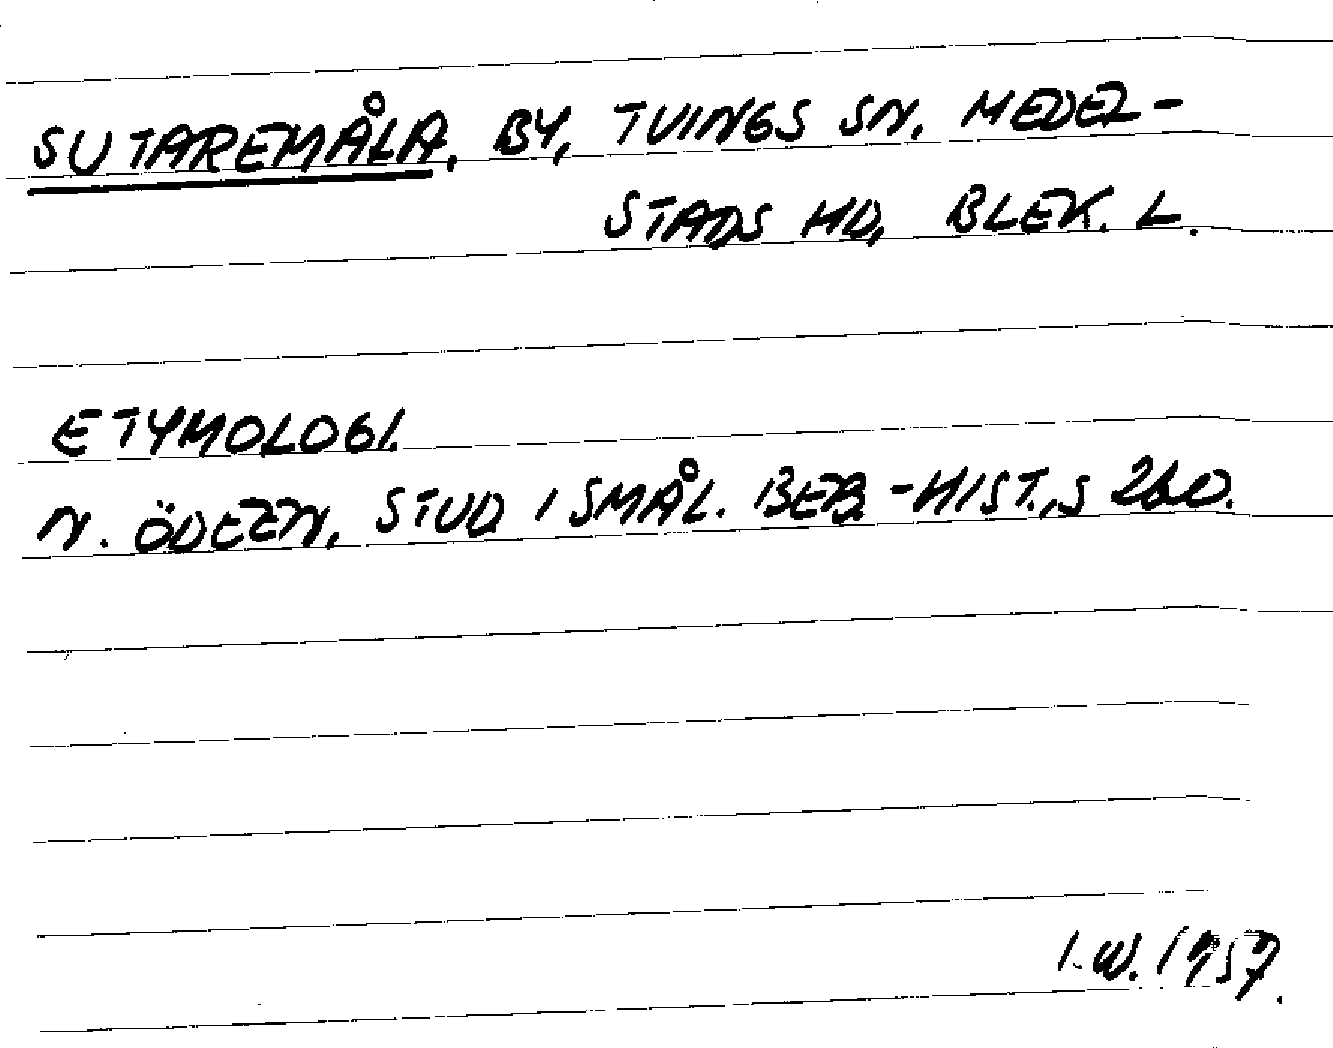 SUTAREMÅLA, BY, TVINGS SN. MEDEL-
STADS HD, BLEK. L.
ETYMOLOGI.
N. ÖDEEN, STUD I SMÅL. BEB.-HIST., S 260.
I.W. 1957.